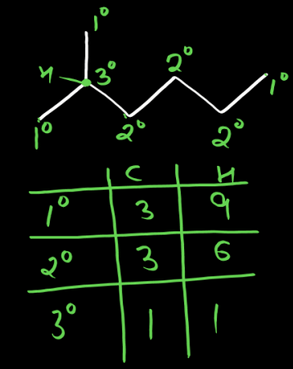 1°
H 3° 2° 1°
1° 2° 2°
C H
1° 3 9
2° 3 6
3° 1 1